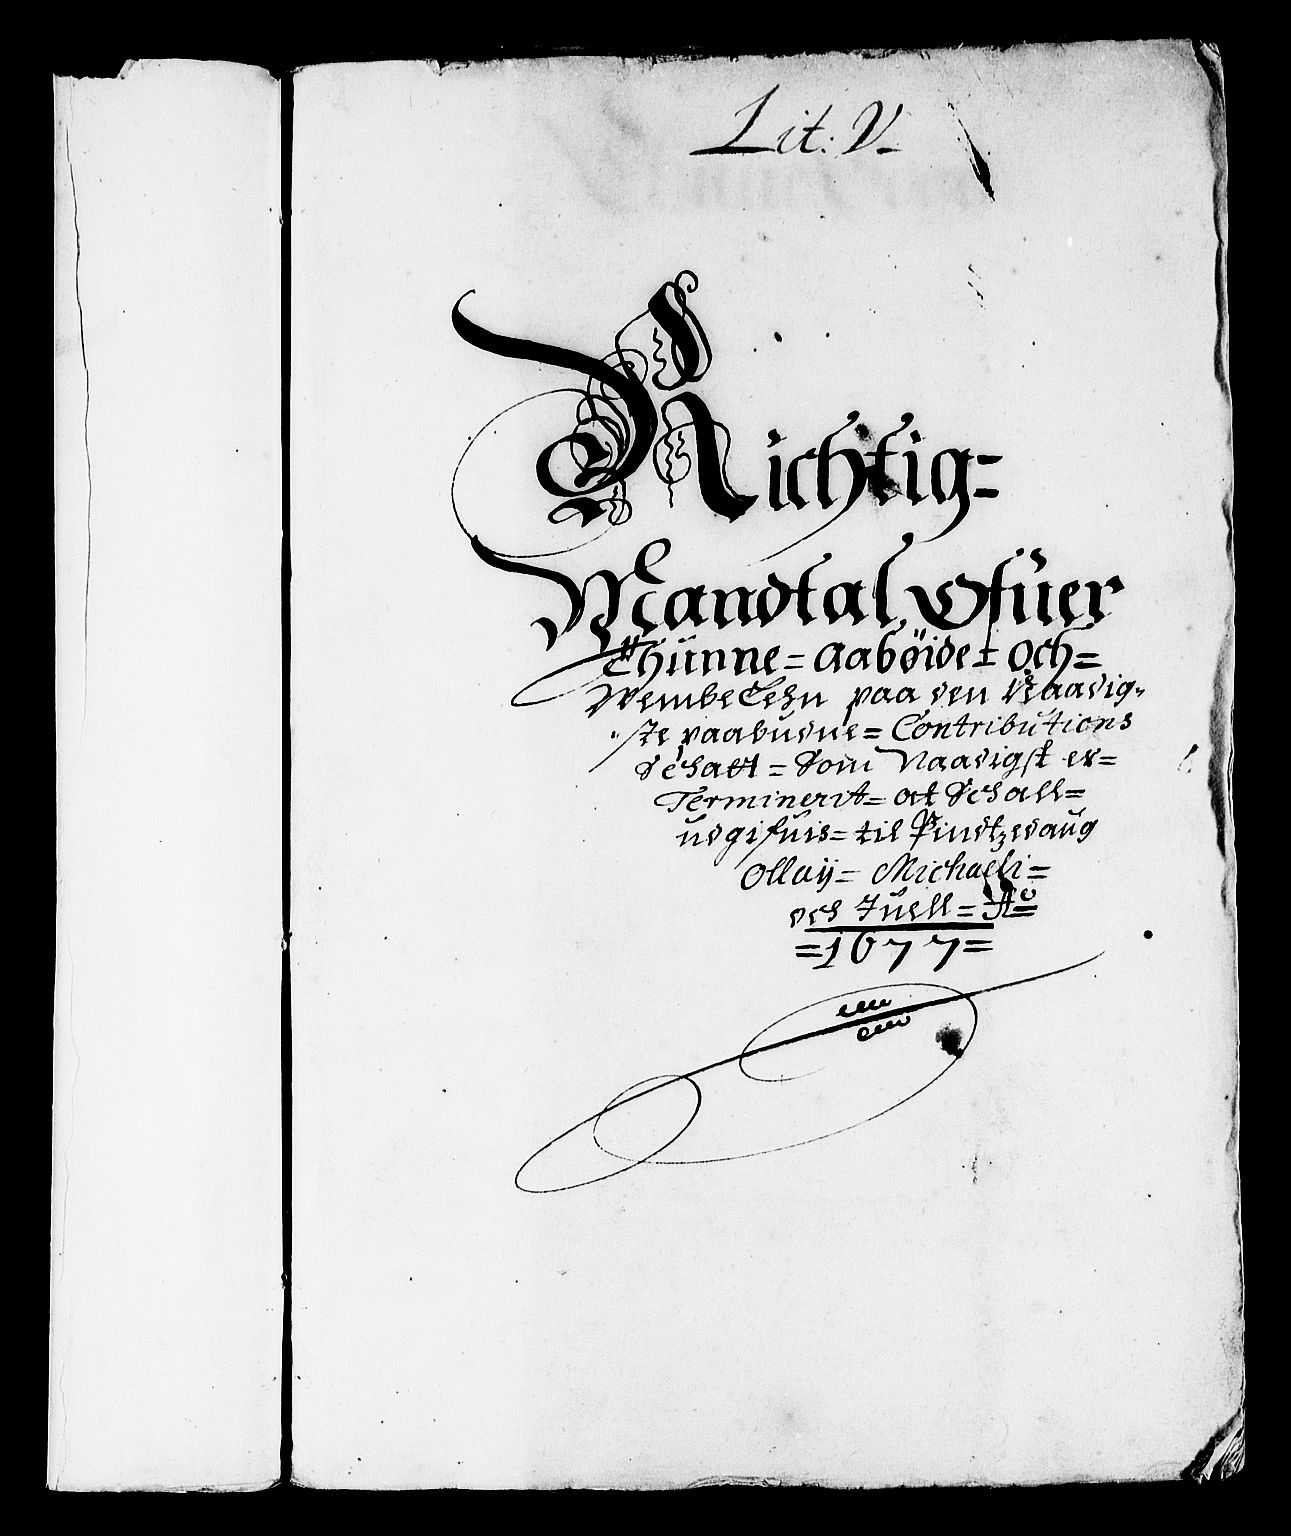 Lit: V.
Richtig=
Mandtal, Ofuer
Thunne= Aabøide= Och=
Wembe Lehn paa den Naadig=
ste paabudne= Contributions
Schatt= Som Naadigst er=
Terminerit= at Schall=
udgifuis= til Pindtzedaug
Ollay= Michaeli=
och Juell= Aº=
=1677=